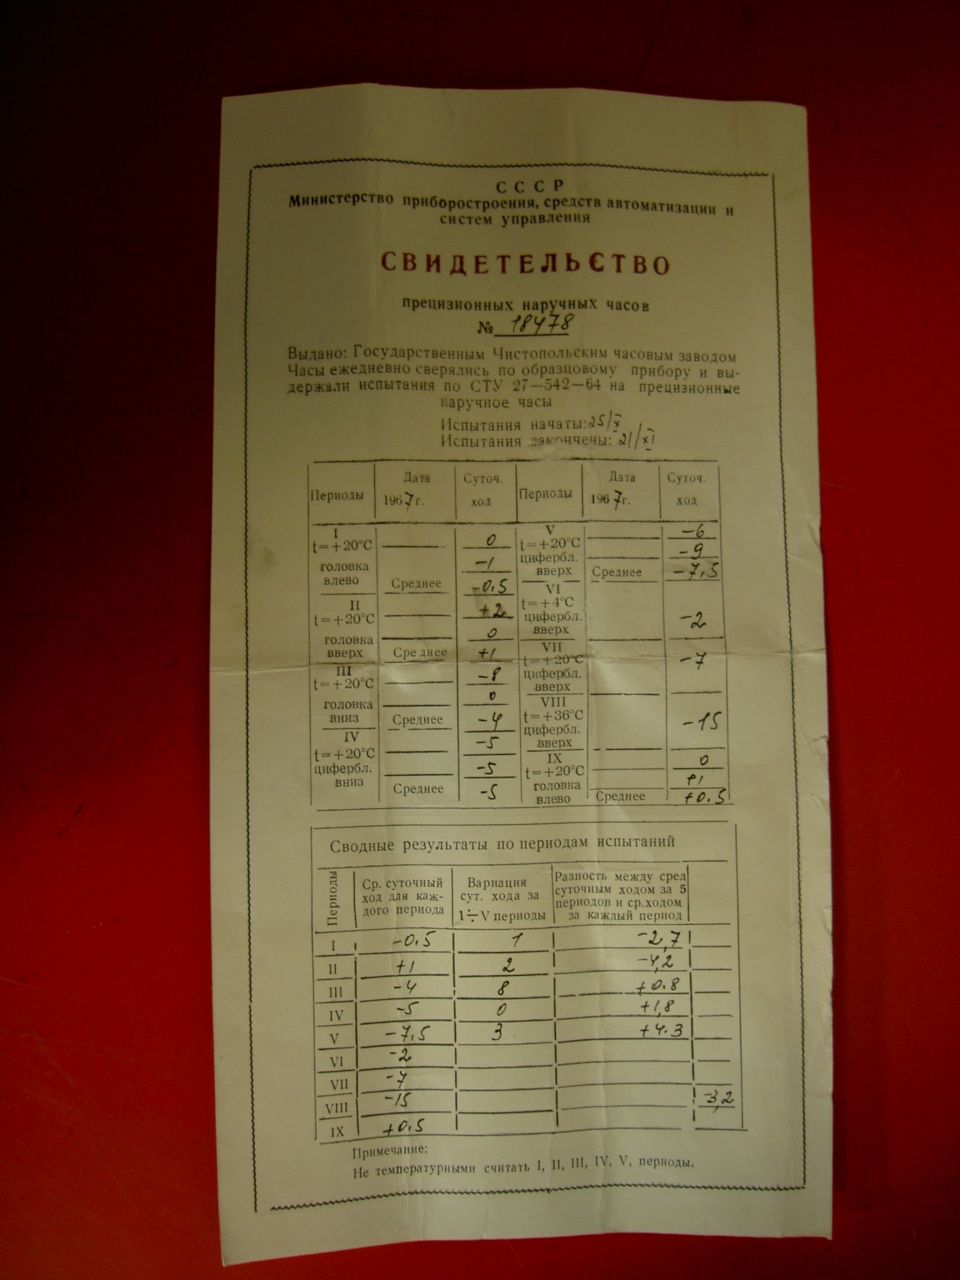 СССР
Министерство приборостроения, средств автоматизации и
систем управления
СВИДЕТЕЛЬСТВО
прецизионных наручных часов
№ 18478
Выдано: Государственным Чистопольским часовым заводом
Часы ежедневно сверялись по образцовому прибору и вы-
держали испытания по СТУ 27—542—64 на прецизионные
наручное часы
Испытания начаты: 25/X
Испытания закончены: 21/XI
Периоды Дата 1967г. Суточ. ход Периоды Дата 1967г. Суточ. ход
I t=+20°C головка влево
0
-1
Среднее -0,5
II t=+20°C головка вверх
+2
0
Среднее +1
III t=+20°C головка вниз
-8
0
Среднее -4
IV t=+20°C цифербл. вниз
-5
-5
Среднее -5
V t=+20°C цифербл. вверх
-6
-9
Среднее -7,5
VI t=+4°C цифербл. вверх
-2
VII t=+20°C цифербл. вверх
-7
VIII t=+36°C цифербл. вверх
-15
IX t=+20°C головка влево
0
+1
Среднее +0.5
Сводные результаты по периодам испытаний
Периоды
Ср. суточный ход для каж-дого периода
Вариация сут. хода за I÷V периоды
Разность между сред суточным ходом за 5 периодов и ср.ходом за каждый период
I -0.5 1 -2,7
II +1 2 -4,2
III -4 8 +0.8
IV -5 0 +1,8
V -7,5 3 +4.3
VI -2
VII -7
VIII -15 -3,2
IX +0.5
Примечание:
Не температурными считать I, II, III, IV, V, периоды.